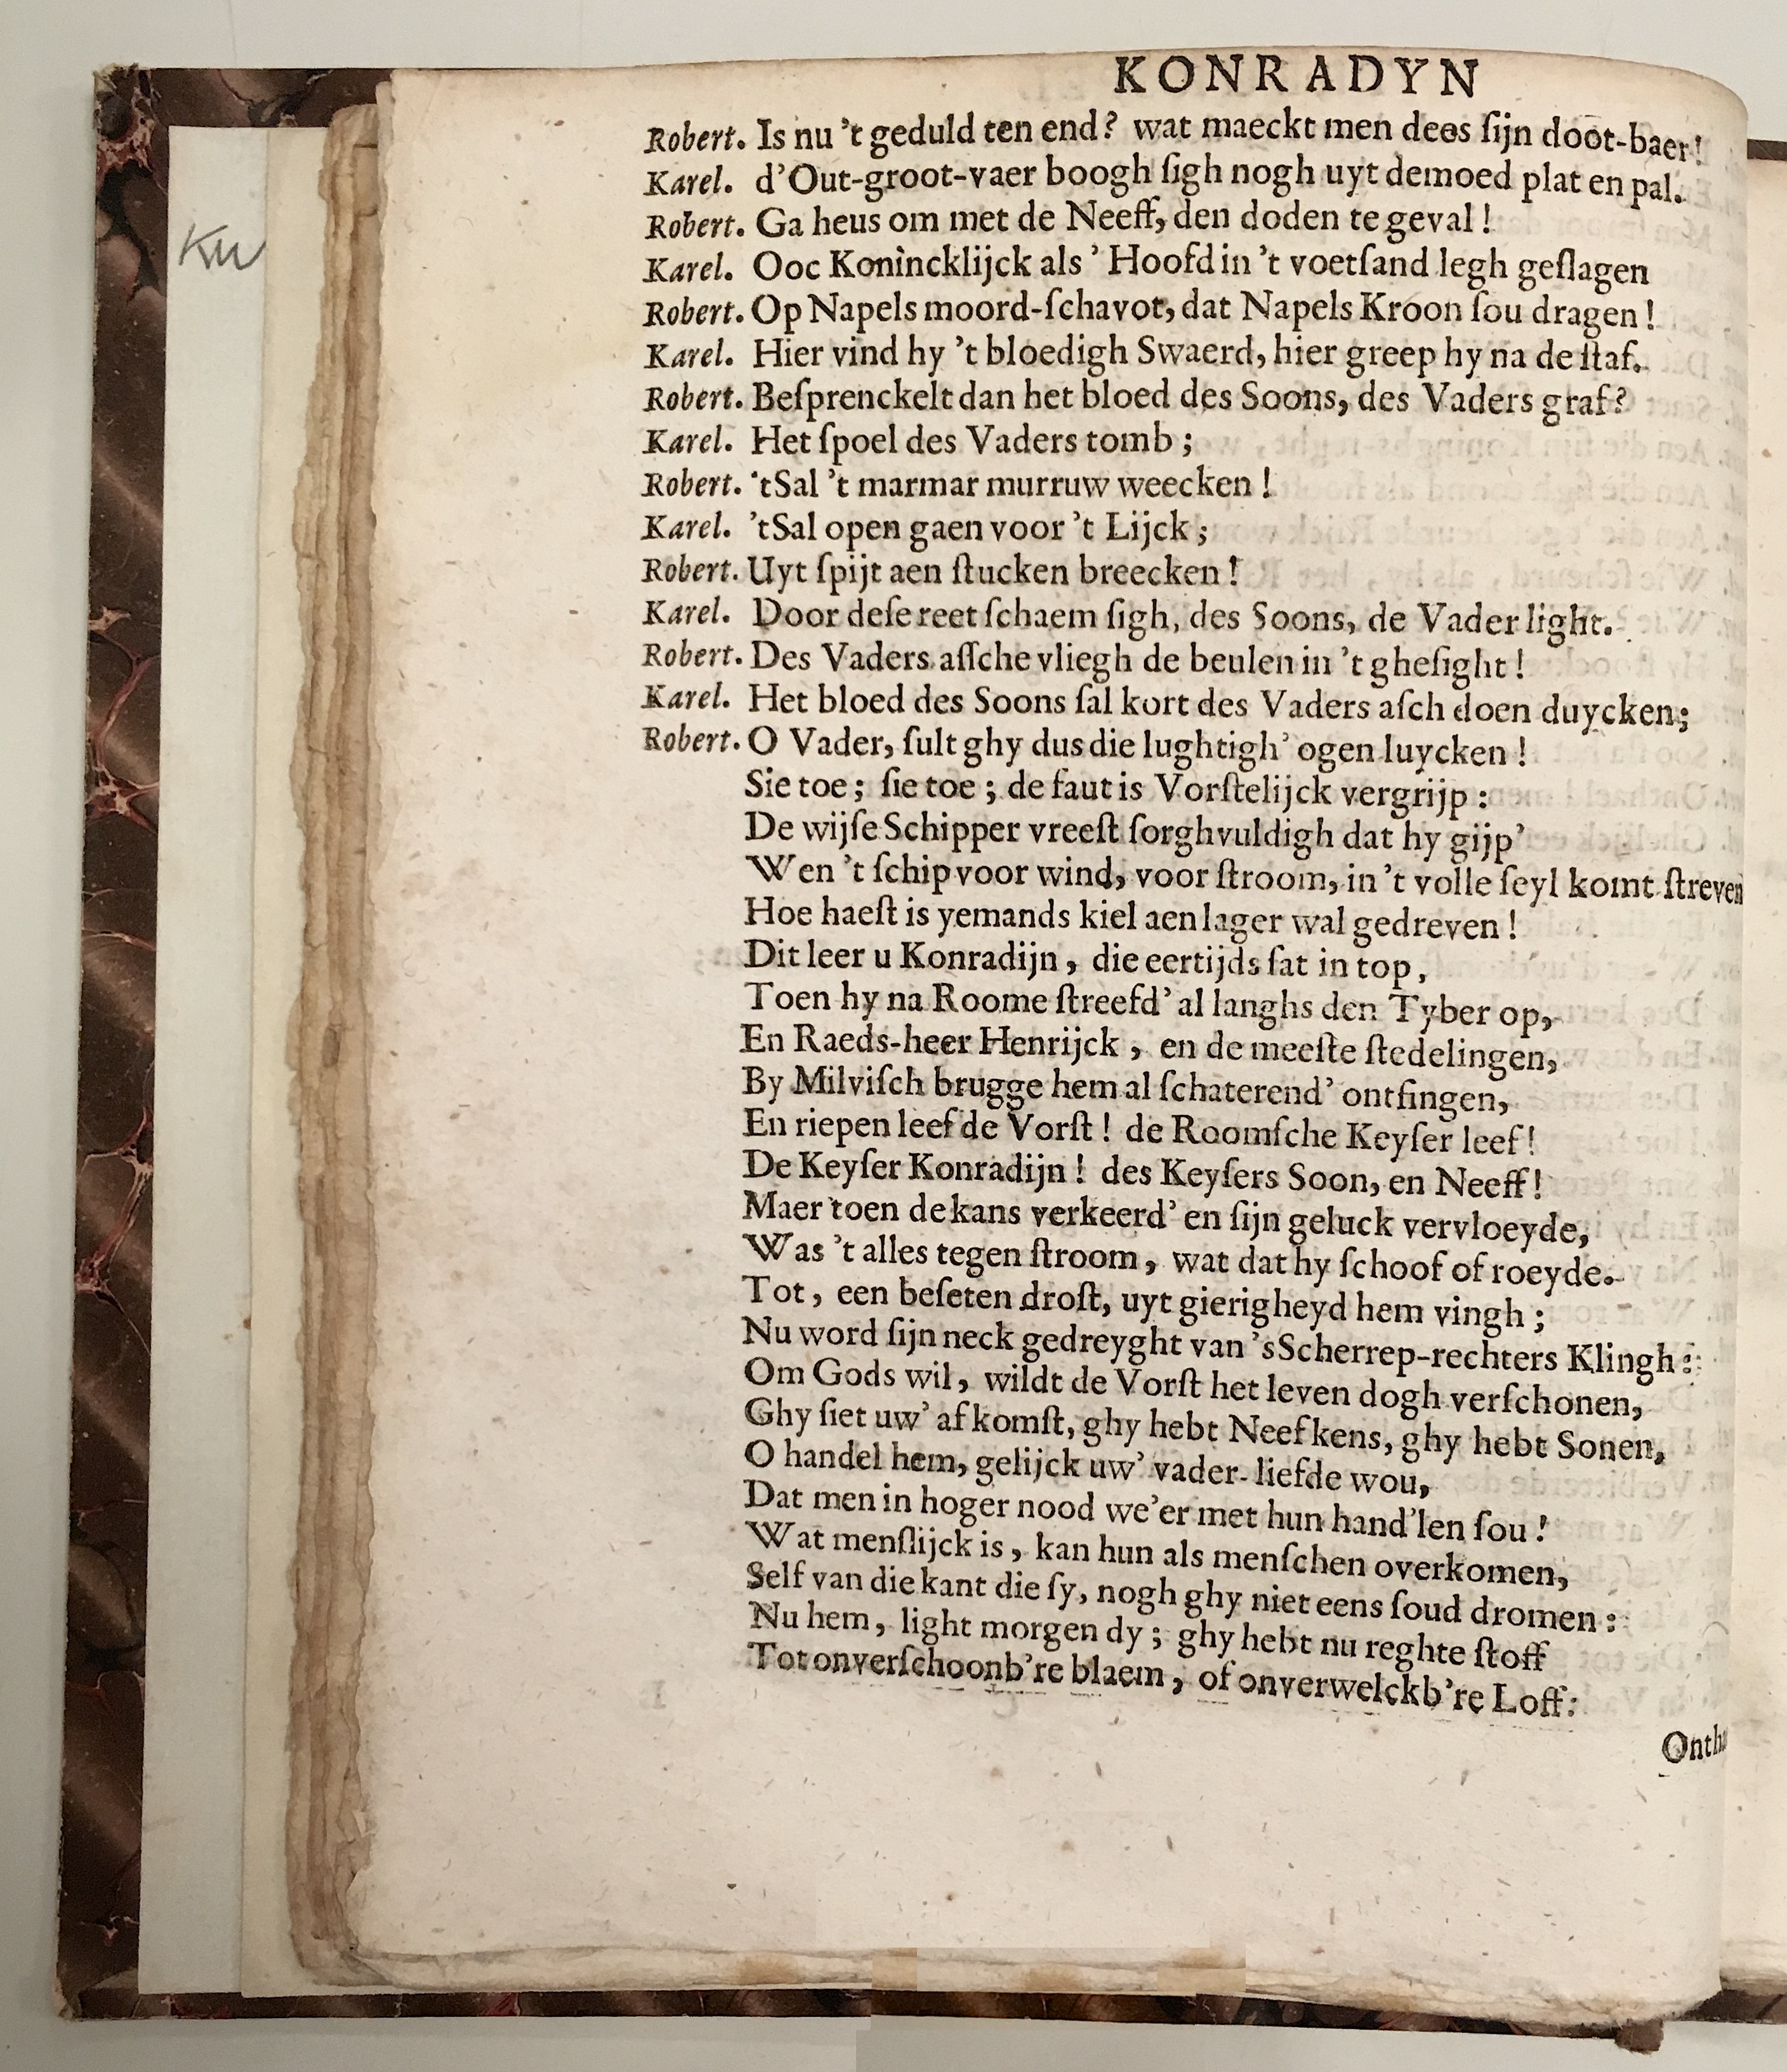 KONRADYN
Robert. Is nu 't geduld ten end? wat maeckt men dees ſijn doot-baer!
Karel. d'Out-groot-vaer boogh ſigh nogh uyt demoed plat en pal.
Robert. Ga heus om met de Neeff, den doden te geval!
Karel. Ooc Konincklijck als ' Hoofd in 't voetſand legh geſlagen
Robert. Op Napels moord-ſchavot, dat Napels Kroon ſou dragen!
Karel. Hier vind hy 't bloedigh Swaerd, hier greep hy na de ſtaf.
Robert. Beſprenckelt dan het bloed des Soons, des Vaders graf?
Karel. Het ſpoel des Vaders tomb;
Robert. 'tSal 't marmar murruw weecken!
Karel. 'tSal open gaen voor 't Lijck;
Robert. Uyt ſpijt aen ſtucken breecken!
Karel. Door deſe reet ſchaem ſigh, des Soons, de Vader light.
Robert. Des Vaders aſſche vliegh de beulen in 't gheſight!
Karel. Het bloed des Soons ſal kort des Vaders aſch doen duycken;
Robert. O Vader, ſult ghy dus die lughtigh' ogen luycken!
Sie toe; ſie toe; de faut is Vorſtelijck vergrijp:
De wijſe Schipper vreeſt ſorghvuldigh dat hy gijp'
Wen 't ſchip voor wind, voor ſtroom, in 't volle ſeyl komt ſtreven
Hoe haeſt is yemands kiel aen lager wal gedreven!
Dit leer u Konradijn, die eertijds ſat in top,
Toen hy na Roome ſtreefd' al langhs den Tyber op,
En Raeds-heer Henrijck, en de meeſte ſtedelingen,
By Milviſch brugge hem al ſchaterend' ontfingen,
En riepen leef de Vorſt! de Roomſche Keyſer leef!
De Keyſer Konradijn! des Keyſers Soon, en Neeff!
Maer toen de kans verkeerd' en ſijn geluck vervloeyde,
Was 't alles tegen ſtroom, wat dat hy ſchoof of roeyde.
Tot, een beſeten droſt, uyt gierigheyd hem vingh;
Nu word ſijn neck gedreyght van 'sScherrep-rechters Klingh:
Om Gods wil, wildt de Vorſt het leven dogh verſchonen,
Ghy ſiet uw' afkomſt, ghy hebt Neefkens, ghy hebt Sonen,
O handel hem, gelijck uw' vader-liefde wou,
Dat men in hoger nood we'er met hun hand'len ſou!
Wat menſlijck is, kan hun als menſchen overkomen,
Self van die kant die ſy, nogh ghy niet eens ſoud dromen:
Nu hem, light morgen dy; ghy hebt nu reghte ſtoff
Tot onverſchoonb're blaem, of onverwelckb're Loff:
KW